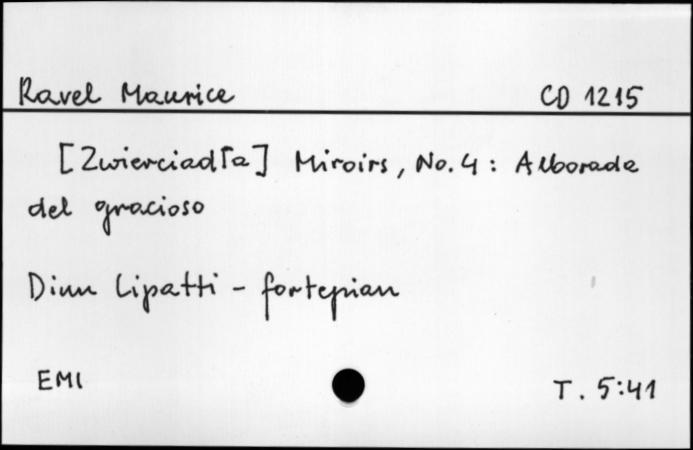 Ravel Maurice CD 1215
[Zwierciadła] Miroirs, No. 4 : Alborada
del gracioso
Dinu Lipatti - fortepian
EMI T. 5:41